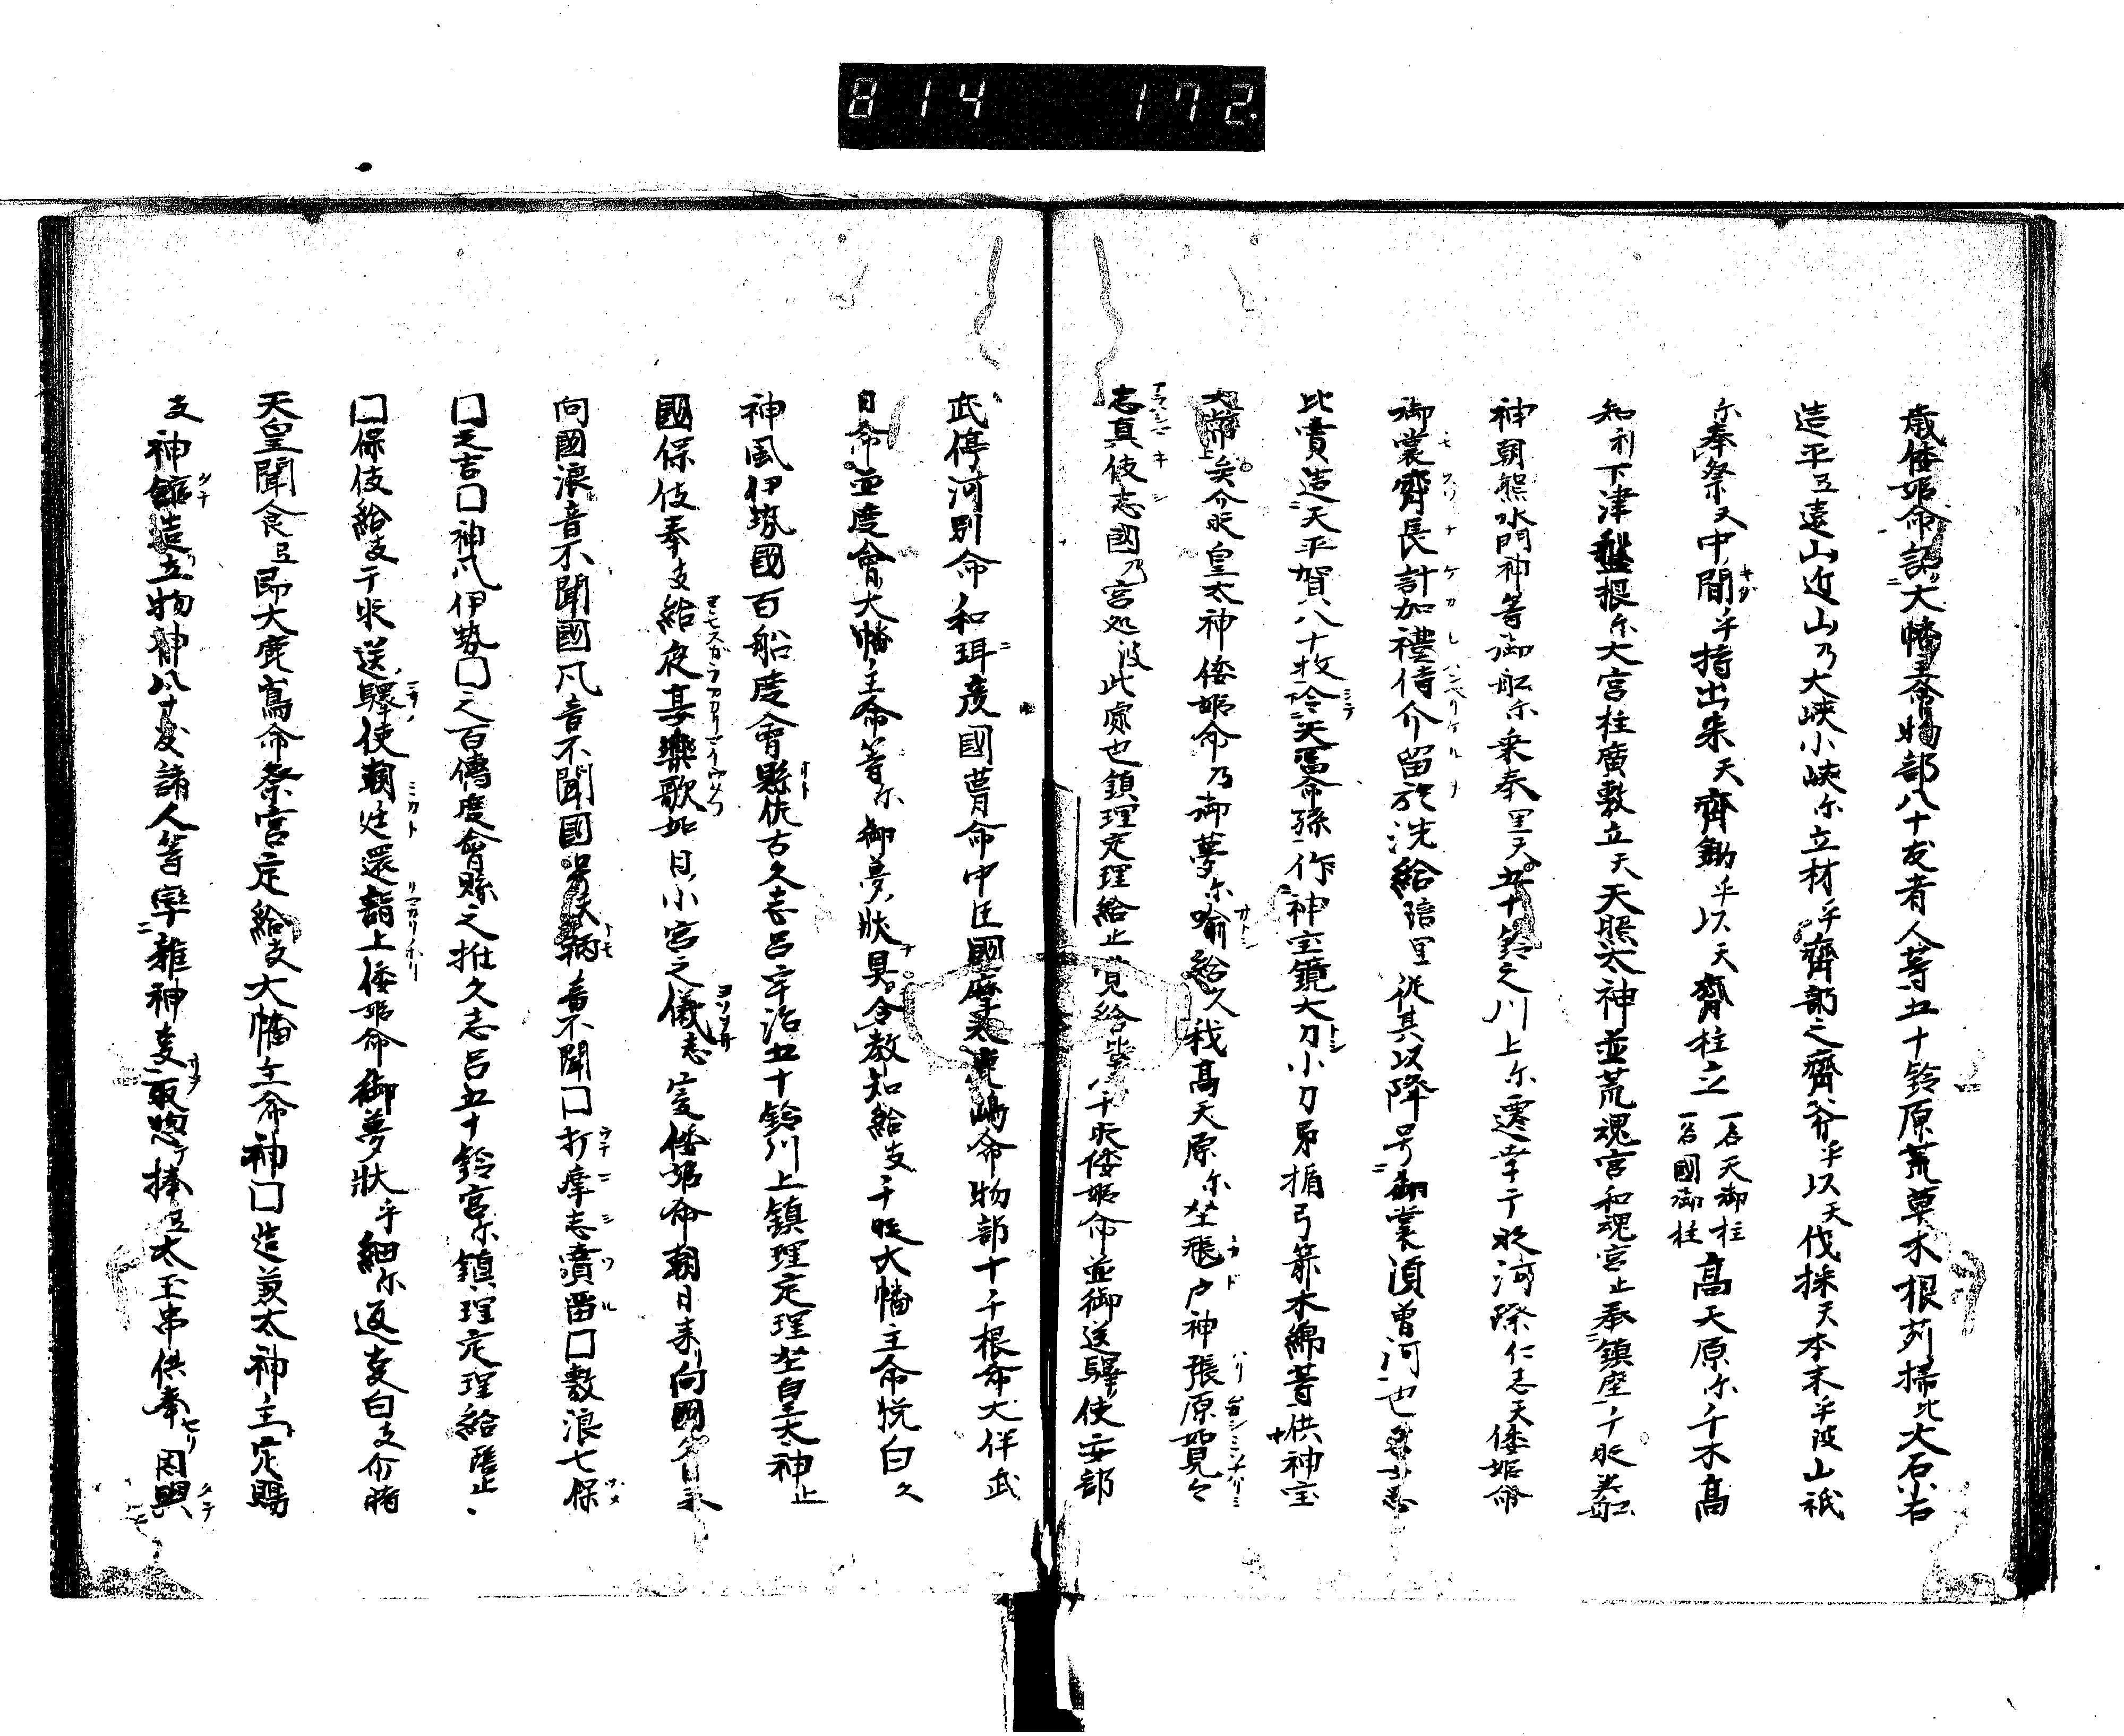 814 172.
歳倭姫命詔大幡主命物部八十友者人等五十鈴原荒草木根苅掃比大石小石
造平弖遠山近山乃大峡小峡尓立材乎齊部之齊斧乎以天伐採天本末乎波山祇
尓奉祭天中間乎持出来天齊鋤乎以天齊柱立一名天御柱一名國御柱高天原尓千木高
知利下津磐根尓大宮柱廣敷立天天照太神並荒魂宮和魂宮止奉鎮座于時美舩
神朝熊水門神等御舩尓乗奉里天五十鈴之川上尓遷幸于時河際仁志天倭姫命
御裳齊長計加禮侍介留於洗給陪里従其以降号御裳須曽河也
比賣造天平賀八十枚令天富命孫作神宝鏡大刀小刀矛楯弓箭木綿等供神宝
大幣矣介時皇太神倭姫命乃御夢尓喻給久我高天原尓坐張戸神張原如見
志真伎志國乃宮処波此處也鎮理定理給止覚給于時倭姫命並御送驛使安部
武渟河別命和珥彦國葺命中臣國摩大鹿嶋命物部十千根命大伴武
日命並度會大幡主命等尓御夢状具令教知給支于時大幡主命悦白久
神風伊勢國百船度會縣佐古久志呂宇治五十鈴川上鎮理定理坐皇太神止
國保伎奉支給夜甚樂歌如日小宮之儀志爰倭姫命朝日来向國夕日来
向國浪音不聞國風音不聞國弓矢鞆音不聞口打摩志賣留口敷浪七保
口之吉口神風伊勢口之百傳度會縣之拆久志呂五十鈴宮尓鎮理定理給止
口保伎給支于時送驛使朝廷還詣上倭姫命御夢状乎細尓返支白支介時
天皇聞食弖即大鹿嶋命祭官定給支大幡主命神口造兼太神主定賜
支神館造立物部八十友諸人等率雜神事取惣捧弖太玉串供奉因興